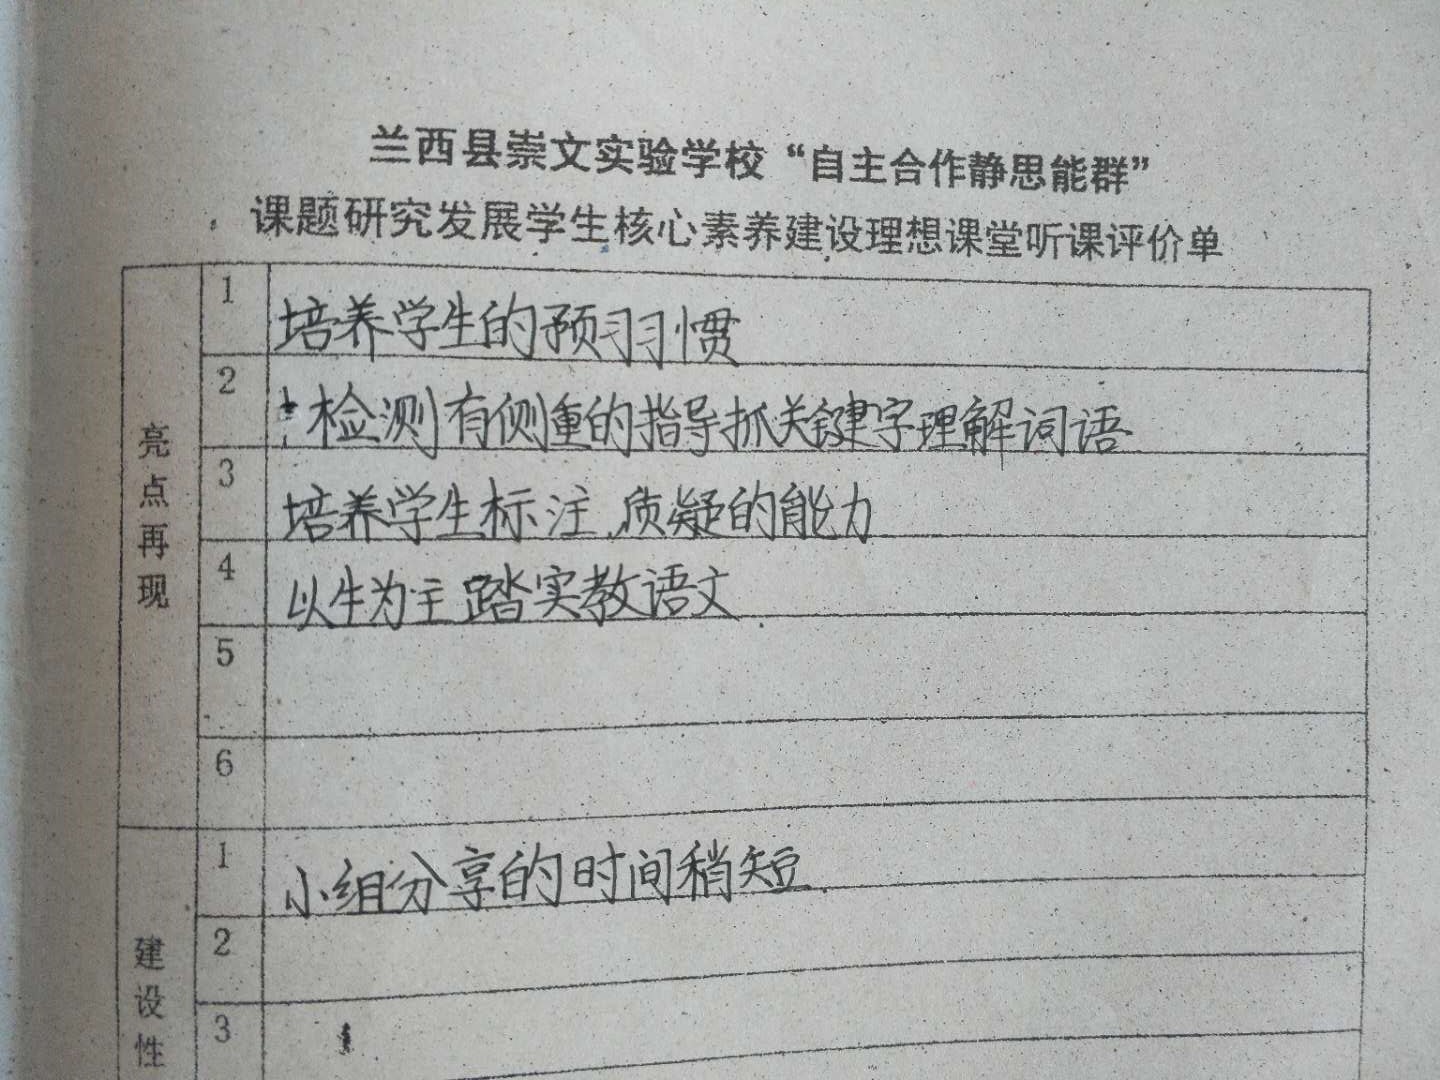 兰西县崇文实验学校“自主合作静思能群”
课题研究发展学生核心素养建设理想课堂听课评价单
亮点再现
1 培养学生的预习习惯
2 检测有侧重的指导抓关键字理解词语
3 培养学生标注、质疑的能力
4 以生为主 踏实教语文
5
6
建设性
1 小组分享的时间稍短
2
3